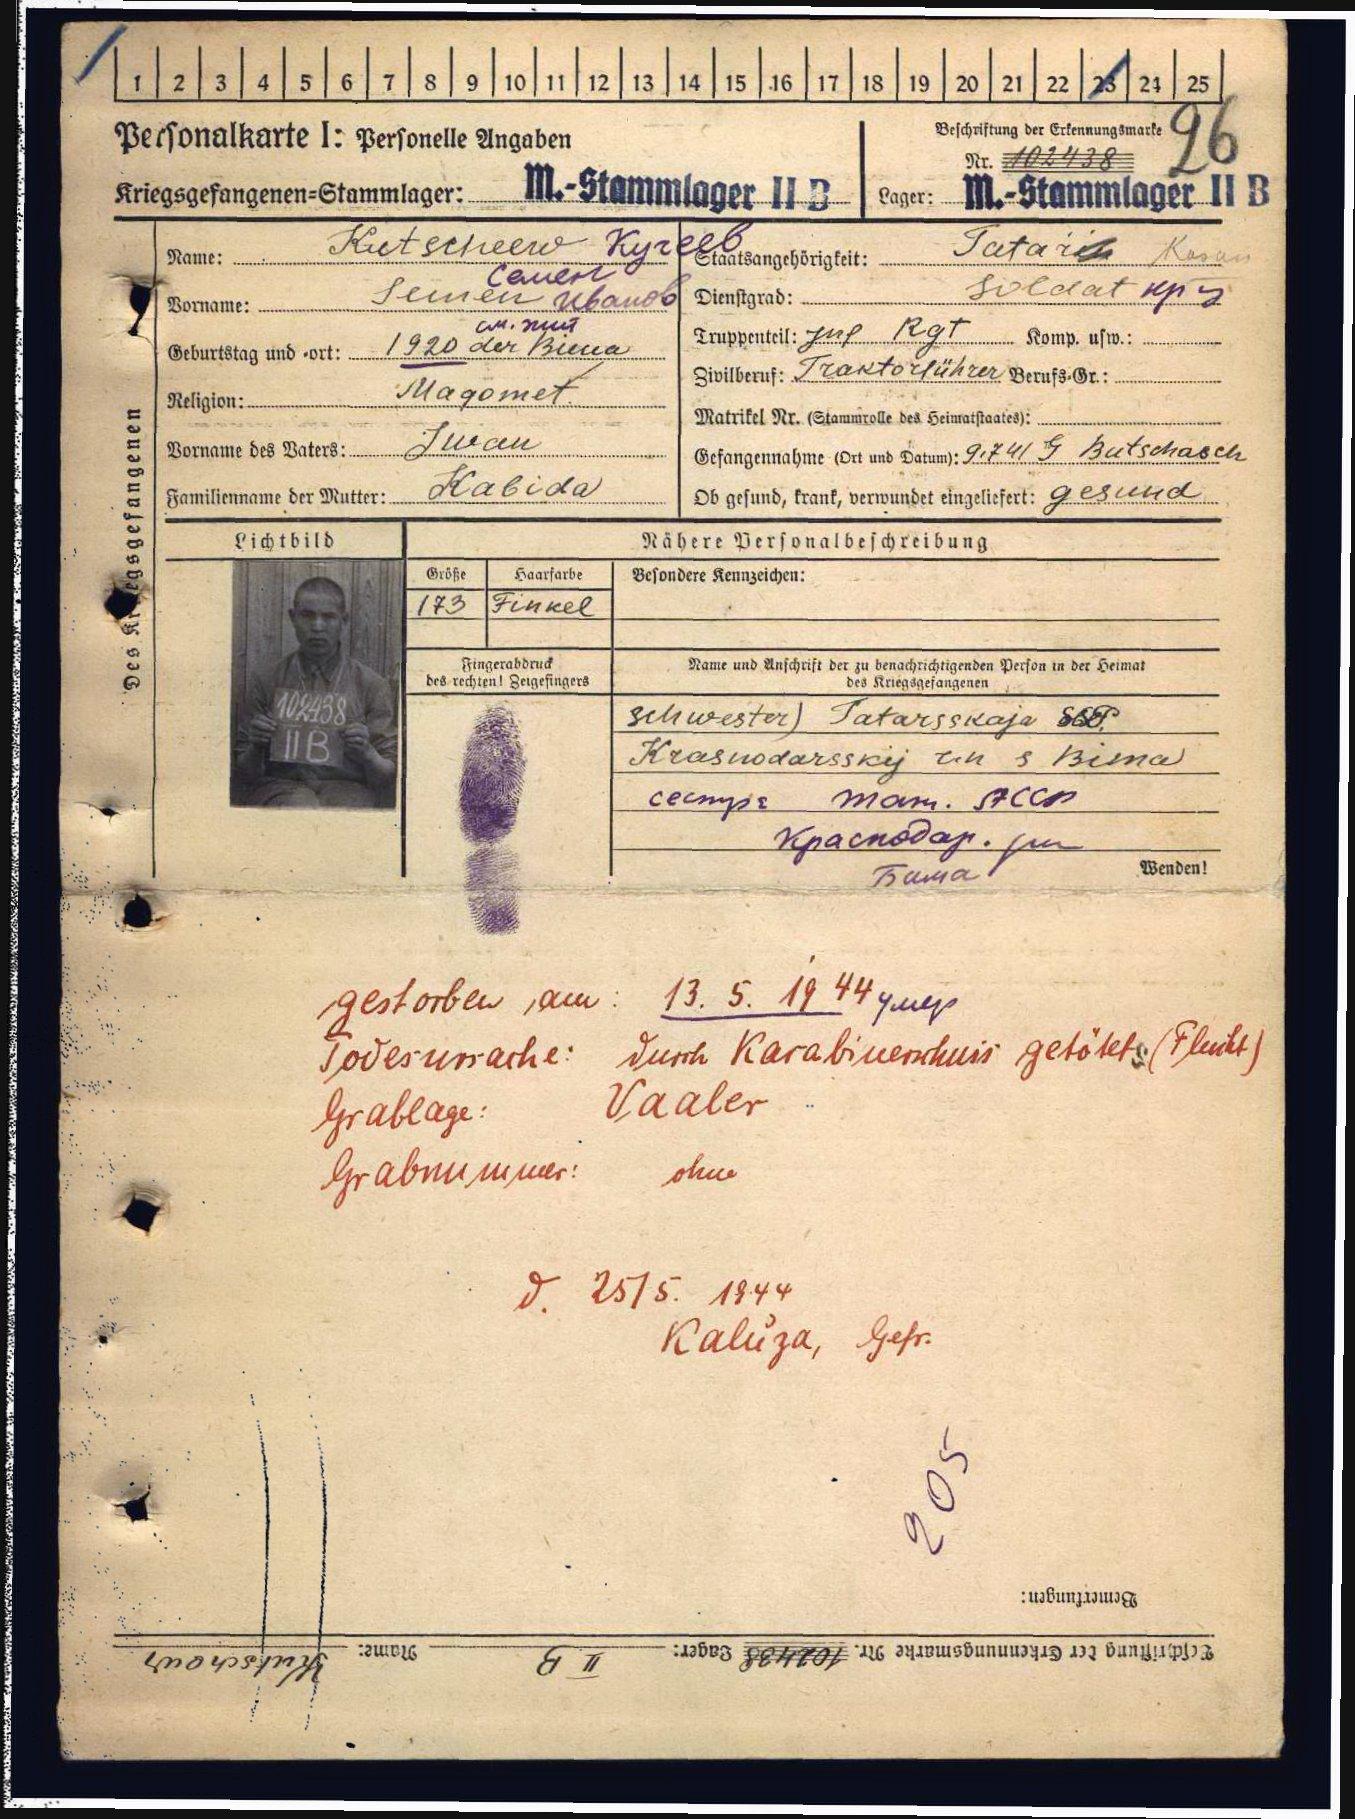 1 2 3 4 5 6 7 8 9 10 11 12 13 14 15 16 17 18 19 20 21 22 23 24 25
Personalkarte I: Personelle Angaben
Kriegsgefangenen=Stammlager: M.-Stammlager II B
Beschriftung der Erkennungsmarke
26
Nr. 102438
Lager: M.-Stammlager II B
Des Kriegsgefangenen
Name: Kutscheew Кучеев
Семен
Vorname: Semen Иванов
Geburtstag und -ort: 1920 der Bima
Religion: Magomet.
Vorname des Vaters: Iwan
Familienname der Mutter: Kabida
Staatsangehörigkeit: Tatar Kasan
Dienstgrad: Soldat кр-ц
Truppenteil: Inf Rgt Komp. usw.:
Zivilberuf: Traktorführer Berufs-Gr.:
Matrikel Nr. (Stammrolle des Heimatstaates):
Gefangennahme (Ort und Datum): 9.7 41 Butschasch
Ob gesund, krank, verwundet eingeliefert: gesund
Lichtbild
Nähere Personalbeschreibung
Größe Haarfarbe Besondere Kennzeichen:
173 Finkel
102438
II B
Fingerabdruck
des rechten! Zeigefingers
Name und Anschrift der zu benachrichtigenden Person in der Heimat
des Kriegsgefangenen
Schwester) Tatarsskaja
Krasnodarsskij s Bima
сестра Тат. АССР
Краснодар. рн
Бима
Wenden!
gestorben am: 13. 5. 1944 умер
Todesursache: durch Karabinerschuss getötet (Flucht)
Grablage: Vaaler
Grabnummer: ohne
d. 25/5. 1944
Kaluza, Gefr.
205
Bemerkungen:
Beschriftung der Erkennungsmarke Nr. 102438 Lager: II B Name: Kutschow